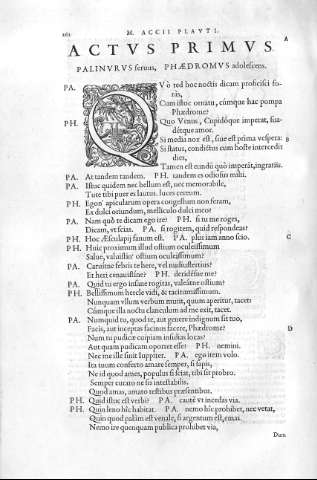 M. ACCII PLAVTI.
A
ACTVS PRIMVS.
PALINVRVS seruus, PHÆDROMVS adolescens.
PA. QVò ted hoc noctis dicam proficisci foràs,
Cum istoc ornatu, cúmque hac pompa Phædrome?
PH. Quò Venus, Cupidóque imperat, suadétque amor.
Si media nox est, siue est prima vespera: B
Si status, condictus cum hoste intercedit dies,
Tamen est eundũ quò imperãt, ingratiis.
PA. At tandem tandem. PH. tandem es odiosus mihi.
PA. Istuc quidem nec bellum est, nec memorabile,
Tute tibi puer es lautus. luces cereum.
PH. Egon' apicularum opera congestum non feram,
Ex dulci oriundum, melliculo dulci meo?
PA. Nam quò te dicam ego ire? PH. si tu me roges,
Dicam, vt scias. PA. si rogitem, quid respondeas?
PH. Hoc Æsculapij fanum est. PA. plus iam anno scio. C
PH. Huic proximum illud ostium oculissimum
Salue, valuistin' ostium oculissimum?
PA. Caruitne febris te here, vel nudiustertius?
Et heri cœnauistine? PH. deridésne me?
PA. Quid tu ergo insane rogitas, valeátne ostium?
PH. Bellissimum hercle vidi, & taciturnissimum.
Nunquam vllum verbum mutit, quum aperitur, tacet:
Cúmque illa noctu clanculum ad me exit, tacet.
PA. Nunquid tu, quod te, aut genere indignum sit tuo, D
Facis, aut inceptas facinus facere, Phædrome?
Num tu pudicæ cuipiam insidias locas?
Aut quam pudicam oportet esse? PH. nemini.
Nec me ille sinit Iuppiter. PA. ego item volo.
Ita tuum consecto amare semper, si sapis,
Ne id quod ames, populus si sciat, tibi sit probro.
Semper curato ne sis intestabilis.
Quod amas, amato testibus præsentibus.
PH. Quid istuc est verbi? PA. cautè vt incedas via.
PH. Quin leno hîc habitat. PA. nemo hîc prohibet, nec vetat,
Quin quod palàm est venale, si argentum est, emas.
Nemo ire quenquam publica prohibet via,
Dum